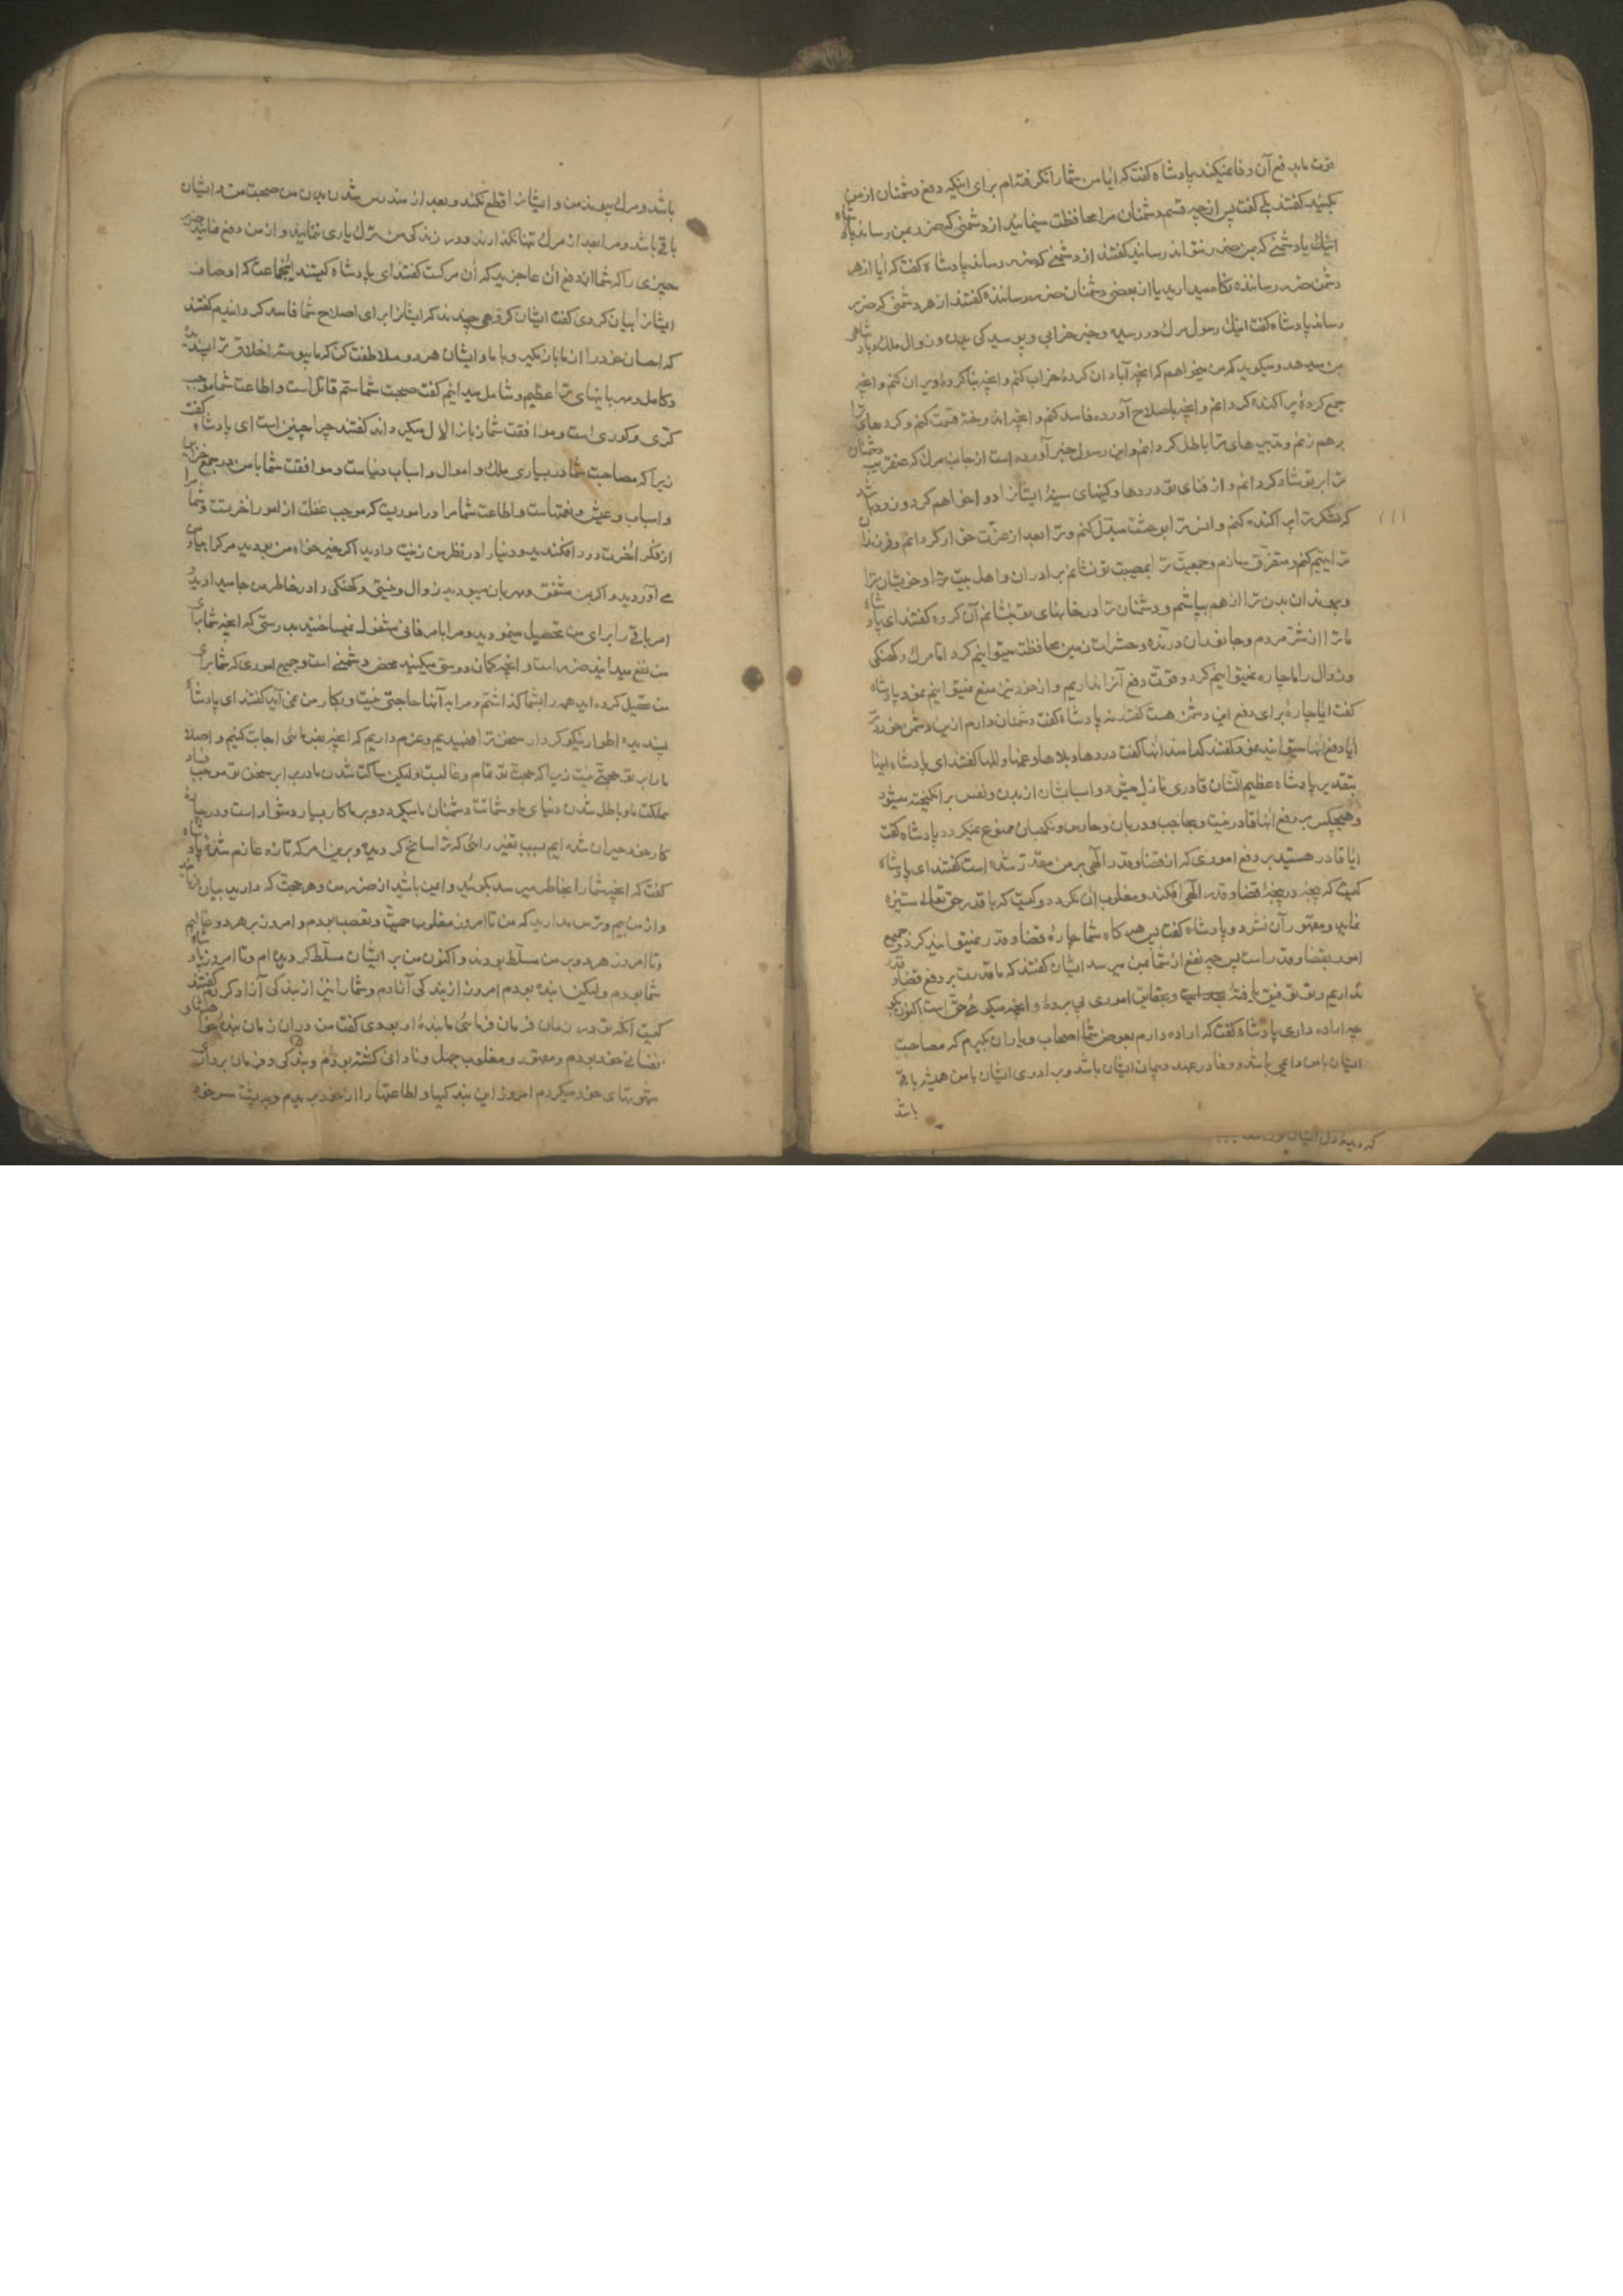 قوت ما بدفع آن وفا نمیکند پادشاه گفت که ایا من شما را نگرفته ام برای اینکه دفع دشمنان از من
بکنید گفتند بلی گفت پس از چه قسم دشمنان مرا محافظت مینمائید از دشمنی که ضرر بمن رساند پادشاه
گفت که ایا از هر
دشمن ضرر رساننده نگاه میدارید یا از بعضی دشمنان ضرر رساننده گفتند از هر دشمنی که ضرر
رساند پادشاه گفت اینک رسول مرک در رسیده و خبر خرابی و پوسیدکی بدن و زوال ملک و پادشاهی
بمن میدهد و میکوید که من میخواهم که انچه آبادان کردهٔ خراب کنم و انچه بنا کردهٔ ویران کنم و انچه
جمع کردهٔ پراکنده کردانم و انچه باصلاح آورده فاسد کنم و انچه اندوخته قسمت کنم و کردهای ترا
برهم زنم و تدبیرهای ترا باطل کردانم و این رسول خبر آورده است از جانب مرک که عنقریب دشمنان
ترا بر تو شاد کردانم و از فنای تو دردها و کینهای سینهٔ ایشانرا دوا خواهم کرد و زود باشد
که لشکر ترا پراکنده کنم و انس ترا بوحشت مبدل کنم و ترا بعد از عزت خوار کردانم و فرزندان
ترا یتیم کنم و متفرق سازم و جمعیت ترا بمصیبت تو نشانم برادران و اهل بیت ترا و خویشان ترا
و پیوندان بدن ترا از هم بپاشم و دشمنان ترا در خانهای تو بنشانم آن کروه گفتند ای پادشاه
ما ترا از شر مردم و جانوران درنده و حشرات زمین محافظت میتوانیم کرد اما مرک و کهنکی
و زوال را ما چاره نمیتوانیم کرد و قوت دفع آنرا نداریم و از خود نیز منع نمیتوانیم نمود پادشاه
گفت ایا چارهٔ برای دفع این دشمن هست گفتند نه پادشاه گفت دشمنان دارم ازین دشمن خوردتر
ایا دفع آنها میتوانید نمود گفتند کدامند آنها گفت دردها و بلاها و غمها و المها گفتند ای پادشاه اینها
بتقدیر پادشاه عظیم الشان قادری نازل میشود و اسبابشان از بدن و نفس برانکیخته میشود
و هیچکس بر دفع آنها قادر نیست و بحاجب و دربان و حارس و نکهبان ممنوع نمیکردد پادشاه گفت
ایا قادر هستید بر دفع اموری که از قضا و قدر الهی بر من مقدر شده است گفتند ای پادشاه
کیست که پنجه در پنجهٔ قضا و قدر الهی افکند و مغلوب آن نکردد و کیست که با قدر حق تعالی ستیزه
نماید و مقهور آن نشود پادشاه گفت پس هرکاه شما چارهٔ قضا و قدر نمیتوانید کرد و جمیع
امور بقضا و قدر است پس چه نفع از شما بمن میرسد ایشان گفتند که ما قدرت بر دفع قضا و قدر
نداریم و تو توفیق یافتهٔ و بحقایق اموری پی بردهٔ و انچه میکوئی حق است اکنون بکو
چه اراده داری پادشاه گفت که اراده دارم بعوض شما اصحاب و یاران بکیرم که مصاحبت
ایشان با من دائمی باشد و وفا در عهد و پیمان ایشان باشد و برادری ایشان با من همیشه باقی
باشد
باشد و مرک پیوند من و ایشانرا قطع نکند و بعد از مندرس شدن بدن من صحبت من و ایشان
باقی باشد و مرا بعد از مرک تنها نکذارند و در زندکی من ترک یاری ننمایند و از من دفع نمایند ضرر
چیزی را که شما از دفع آن عاجزید که آن مرکست گفتند ای پادشاه کیستند اینجماعت که اوصاف
ایشانرا بیان کردی گفت ایشان کروهی چندند که ایشانرا برای اصلاح شما فاسد کردانیدم گفتند
که احسان خود را از ما باز مکیر و با ما و ایشان هر دو ملاطفت کن که ما پیوسته اخلاق ترا پسندیده
و کامل و مهربانیهای ترا عظیم و شامل میدانیم گفت صحبت شما سم قاتل است و اطاعت شما موجب
کری و کوری است و موافقت شما زبانرا لال میکرداند گفتند چرا چنین است ای پادشاه گفت
زیرا که مصاحبت شما در بسیاری ملک و اموال و اسباب دنیاست و موافقت شما با من در جمع خزاین
و اسباب و عیش و نعمتهاست و اطاعت شما مرا در اموریست که موجب غفلت از امور آخرتست و شما مرا
از فکر آخرت دور افکندید و دنیا را در نظر من زینت دادید اکر خیرخواه من بودید مرک را بیاد من
می آوردید و اکر بمن مشفق و مهربان میبودید زوال و نیستی و کهنکی را در خاطر من جا میدادید و
امر باقی را برای من تحصیل مینمودید و مرا بامر فانی مشغول نمیساختید بدرستی که انچه شما برای
من نفع میدانید ضرر است و انچه کمان دوستی میکنید محض دشمنی است و جمیع اموری که شما برای
من تحصیل کرده اید همه را بشما کذاشتم و مرا به آنها حاجتی نیست و بکار من نمی آید گفتند ای پادشاه
پسندیده اطوار نیکو کردار سخن ترا فهمیدیم و عزم داریم که انچه بفرمائی اجابت کنیم و اصلا
ما را بر تو حجتی نیست زیرا که حجت تو تمام و غالبست ولیکن ساکت شدن ما در برابر سخن تو موجب فساد
مملکت ما و باطل شدن دنیای ما و شماتت دشمنان ما میکردد و بر ما کار بسیار دشوار است و در چاره
کار خود حیران شده ایم بسبب تغیر رائی که ترا سانح کردیده و برین امر که تازه عازم شدهٔ پادشاه
گفت که انچه شما را بخاطر میرسد بکوئید و ایمن باشید از ضرر من و هر حجت که دارید بیان نمائید
و از من بیم و ترس مدارید که من تا امروز مغلوب حمیت و تعصب بودم و امروز بر هر دو غالبم
و تا امروز هر دو بر من مسلط بودند و اکنون من بر ایشان مسلط کردیده ام و تا امروز پادشاه
شما بودم ولیکن بنده بودم امروز از بندکی آزادم و شما را نیز از بندکی آزاد کردم گفتند
کیست آنکه تو در زمان فرمان فرمائی ما بندهٔ او بودی گفت من دران زمان بندهٔ خواهشهای
نفسانی خود بودم و مقهور و مغلوب جهل و نادانی کشته بودم و بندکی و فرمان برداری
شهوتهای خود میکردم امروز این بندکیها و اطاعتها را از خود بریدم و در پشت سر خود